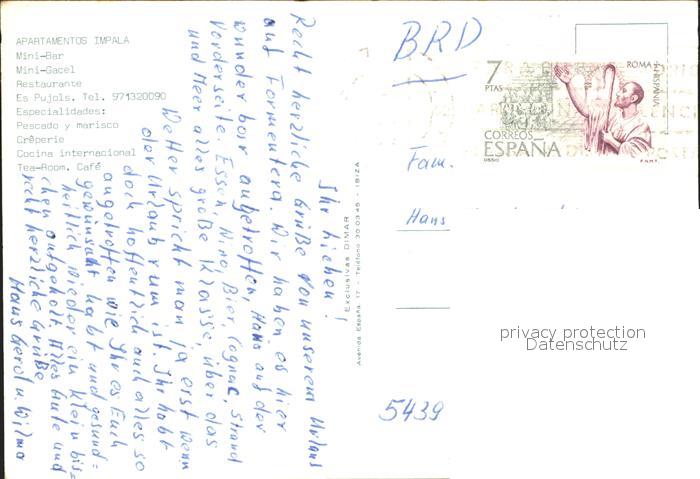 APARTAMENTOS IMPALA
Mini-Bar
Mini-Gacel
Restaurante
Es Pujols. Tel. 971320090
Especialidades:
Pescado y marisco
Crêperie
Cocina internacional
Tea-Room. Café
Ihr Lieben!
Recht herzliche Grüße von unserem Urlaub
auf Formentera. Wir haben es hier
wunderbar angetroffen, Haus auf der
Vorderseite. Essen, Vino, Bier, Cognac, Strand
und Meer alles große Klasse, über das
Wetter spricht man ja erst wenn
der Urlaub rum ist. Ihr habt
doch hoffentlich auch alles so
angetroffen wie Ihr es Euch
gewünscht habt und gesund=
heitlich wieder ein klein bis=
chen aufgeholt. Alles Gute und
recht herzliche Grüße
Hans Gerd u. Wilma
Exclusivas DIMAR
Avenida España, 17 - Teléfono 30 03 45 - IBIZA
BRD
7
PTAS
ROMA
HISPANIA
CORREOS
ESPAÑA
F.N.M.T.
Fam.
Hans
5439
privacy protection
Datenschutz